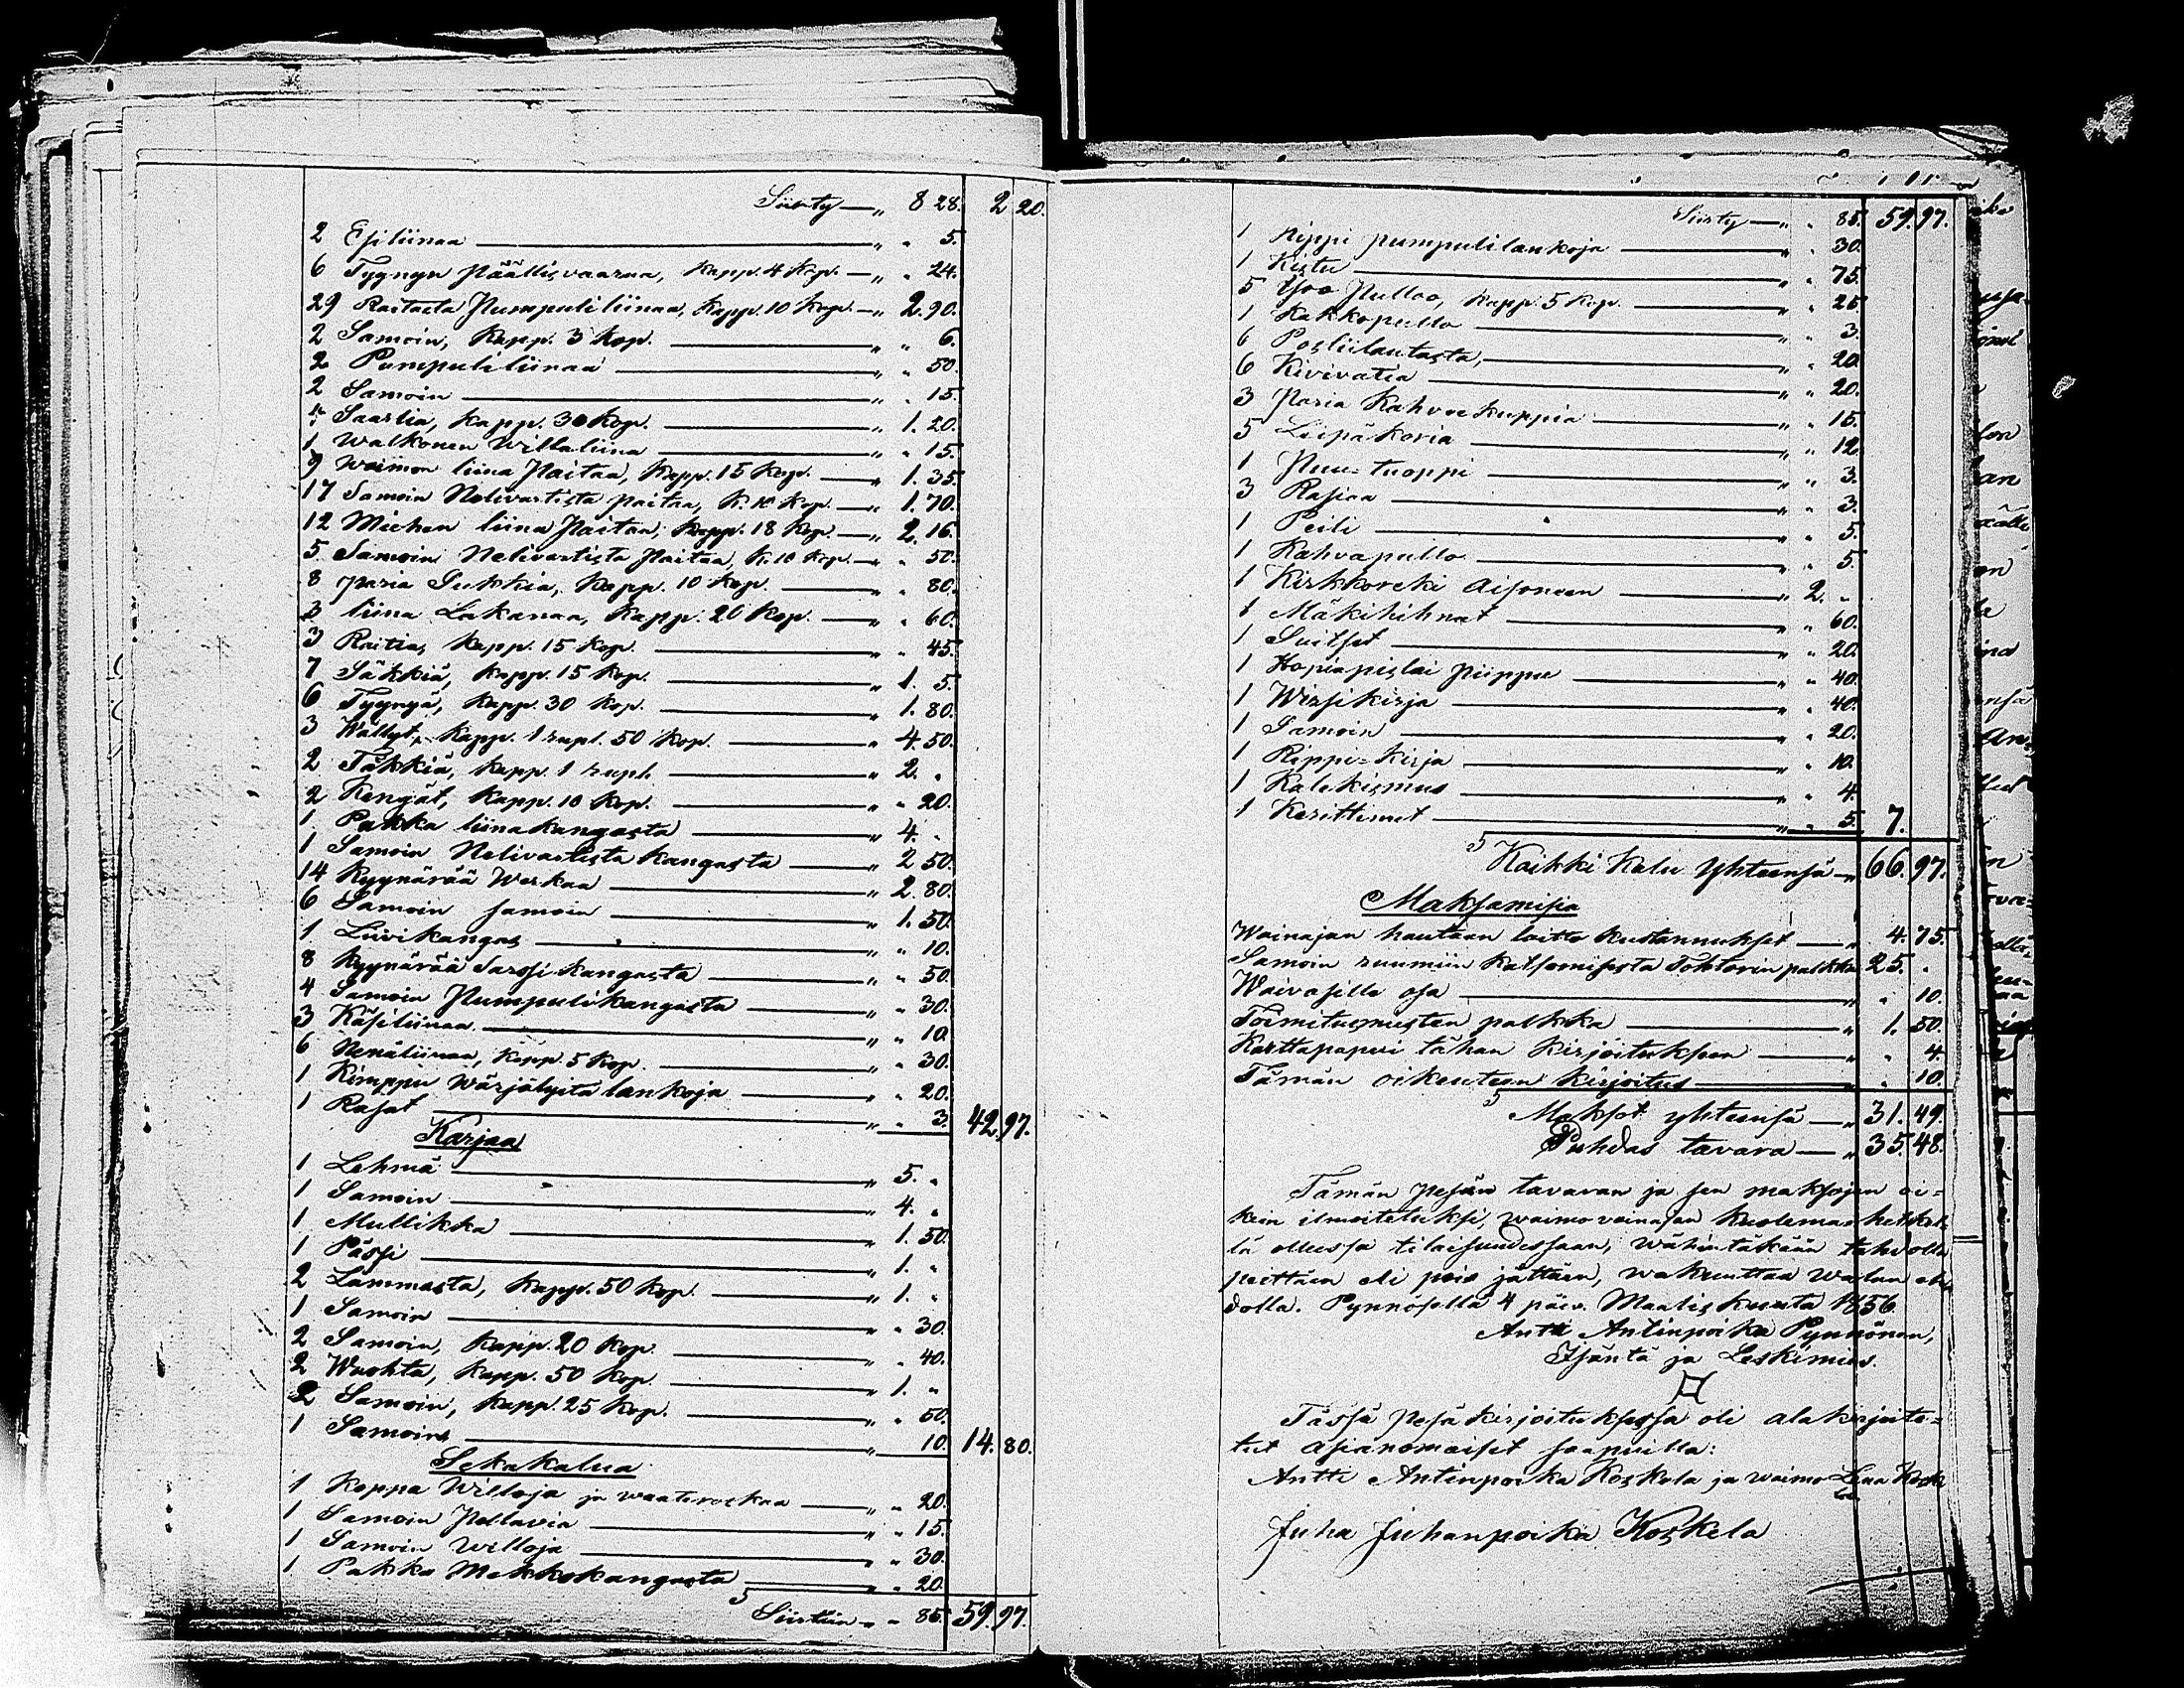 Siirty — „ 8 28. 2 20.
2 Esiliinaa — „ „ 5.
6 Tyynyn Päällisvaarua, Kapp. 4 Kop. — „ „ 24.
29 Raitaista Pumpuliliinaa, Kapp. 10 Kop. — „ 2. 90.
2 Samoin, Kapp. 3 Kop. — „ „ 6.
2 Pumpuliliinaa — „ „ 50.
2 Samoin — „ „ 15.
4 Saarlia, Kapp. 30 Kop. — „ 1. 20.
1 Walkonen Willaliina — „ „ 15.
9 Waimon liina Paitaa, Kapp. 15 Kop. — „ 1. 35.
17 Samoin Nelivartista paitaa, K. 10 Kop. — „ 1. 70.
12 Miehen liina Paitaa, Kapp. 18 Kop. — „ 2. 16.
5 Samoin Nelivartista Paitaa, K. 10 Kop. — „ „ 50.
8 paria Sukkia, Kapp. 10 Kop. — „ „ 80.
3 liina Lakanaa, Kapp. 20 Kop. — „ „ 60.
3 Raitia, Kapp. 15 Kop. — „ „ 45.
7 Säkkiä, Kapp. 15 Kop. — „ 1. 5.
6 Tyynyä, Kapp. 30 Kop. — „ 1. 80.
3 Wällyt, Kapp. 1 rupl. 50 Kop. — „ 4. 50.
2 Täkkiä, Kapp. 1 rupl. — „ 2. „
2 Kengät, Kapp. 10 Kop. — „ „ 20.
1 Pakka liinakangasta — „ 4. „
1 Samoin Nelivartista Kangasta — „ 2 50.
14 Kyynärää Werkaa — „ 2. 80.
6 Samoin samoin — „ 1. 50.
1 Liivikangas — „ „ 10.
8 Kyynärää Sarssi Kangasta — „ „ 50.
4 Samoin Pumpulikangasta — „ „ 30.
3 Käsiliinaa — „ „ 10.
6 Nenäliinaa, Kapp. 5 Kop. — „ „ 30.
1 Kimppu Wärjätyitä lankoja — „ „ 20.
1 Rasat — „ „ 3. 42. 97.
Karjaa
1 Lehmä — „ 5. „
1 Samoin — „ 4. „
1 Mullikka — „ 1. 50.
1 Pässi — „ 1. „
2 Lammasta, Kapp. 50 Kop. — „ 1. „
1 Samoin — „ „ 30.
2 Samoin, Kapp. 20 Kop. — „ „ 40.
2 Wuohta, Kapp. 50 Kop. — „ 1. „
2 Samoin, Kapp. 25 Kop. — „ „ 50.
1 Samoin — „ 10. 14. 80.
Sekakalua
1 Koppa Willoja ja — „ „ 20.
1 Samoin Pellavia — „ „ 15.
1 Samoin Willoja — „ „ 30.
1 Pakka Mekkokangasta — „ „ 20.
Siirtään „ „ 85. 59. 97.
Siirty — „ „ 85. 59. 97.
1 Kippi pumpulilankoja — „ „ 30.
1 Kistu — „ „ 75.
5 Isoo Pulloo, Kapp. 5 Kop. — „ „ 25.
1 Kakkopullo — „ „ 3.
6 Posliilautasta — „ „ 20.
6 Kivivatia — „ „ 20.
3 Paria Kahvee Kuppia — „ „ 15.
5 Leipäkoria — „ „ 12.
1 Puu-tuoppi — „ „ 3.
3 Rasiaa — „ „ 3.
1 Peili — „ „ 5.
1 Kahvapullo — „ „ 5.
1 Kirkkoreki Aisoneen — „ 2. „
1 Mäkihihnat — „ „ 60.
1 Suitset — „ „ 20.
1 Hopiapislai piippu — „ „ 40.
1 Wirsikirja — „ „ 40.
1 Samoin — „ „ 20.
1 Rippi-Kirja — „ „ 10.
1 Katekismus — „ „ 4.
1 Kerittimet — „ „ 5. 7.
Kaikki Kalu Yhteensä — „ 66. 97.
Maksamisia
Wainajan hautaan laitto Kustannukset — „ 4. 75.
Samoin ruumiin Katsomisesta Tohtorin palkka 25. „
Waivasille osa — „ „ 10.
Toimitusmiesten palkka — „ 1. 50.
Karttapaperi tähän Kirjoitukseen — „ „ 4.
Tämän oikeuteen kirjoitus — „ „ 10.
Maksot yhteensä — „ 31. 49.
Puhdas tavara — „ 35. 48.
Tämän pesän tavaran ja sen maksojen oi-
kein ilmoitetuksi, waimovainajan Kuoleman hetkel-
lä olleessa tilaisuudessaan, wähintäkään tahdolla
peittäen eli pois jättäen, wakuuttaa walan eh-
dolla. Pynnösellä 4 päiv. Maaliskuuta 1856.
Antti Antinpoika Pynnönen,
Isäntä ja Leskimies.
Tässä pesäkirjoituksessa oli alakirjoite-
tut asianomaiset saapuilla:
Antti Antinpoika Koskela ja waimo Leena Koske
la.
Juha Juhanpoika Koskela